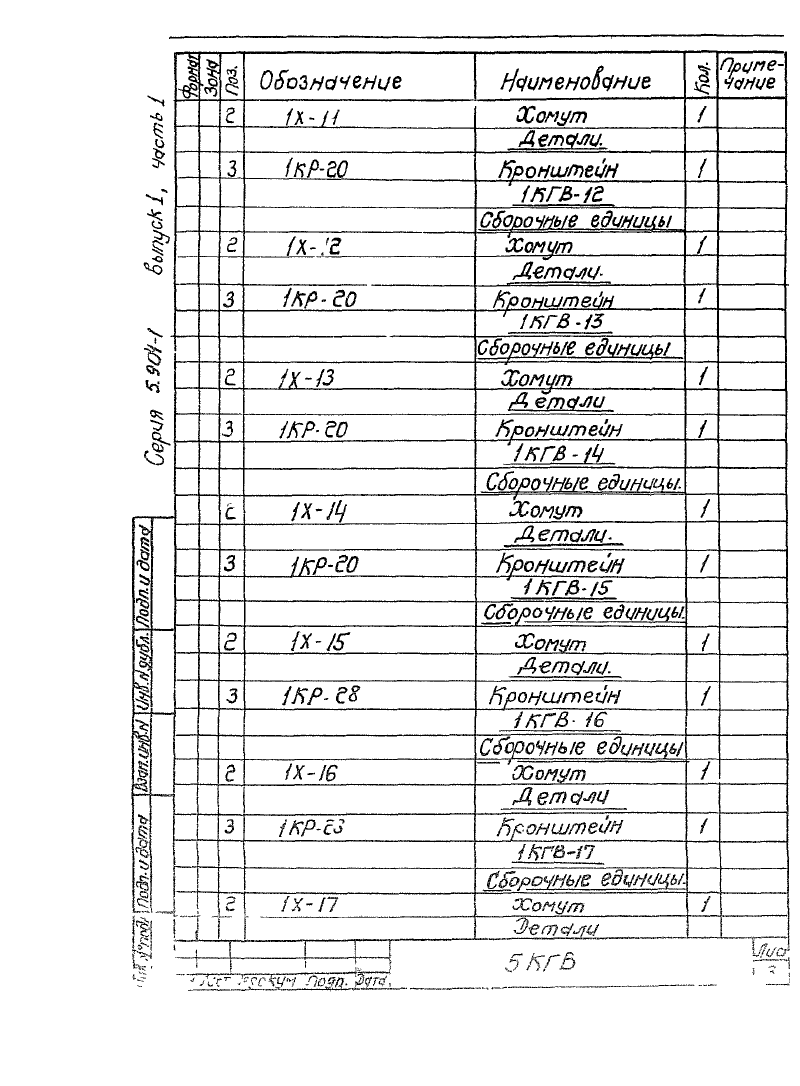 Формат Зона Поз. Обозначение Наименование Кол. Приме-чание
2 1Х-11 Хомут 1
Детали.
3 1КР-20 Кронштейн 1
1КГВ-12
Сборочные единицы
2 1Х-12 Хомут 1
Детали.
3 1КР-20 Кронштейн 1
1КГВ-13
Сборочные единицы
2 1Х-13 Хомут 1
Детали
3 1КР-20 Кронштейн 1
1КГВ-14
Сборочные единицы.
2 1Х-14 Хомут 1
Детали.
3 1КР-20 Кронштейн 1
1КГВ-15
Сборочные единицы.
2 1Х-15 Хомут 1
Детали.
3 1КР-28 Кронштейн 1
1КГВ-16
Сборочные единицы
2 1Х-16 Хомут 1
Детали
3 Кронштейн 1
1КГВ-17
Сборочные единицы.
2 1Х-17 Хомут 1
Детали
5КГВ
Лист
3
Лист №докум Подп. Дата.
Серия 5.904-1 выпуск 1, часть 1
Подп. и дата
Инв.N дубл.
Взам.инв.N
Подп. и дата
Инв. №подл.